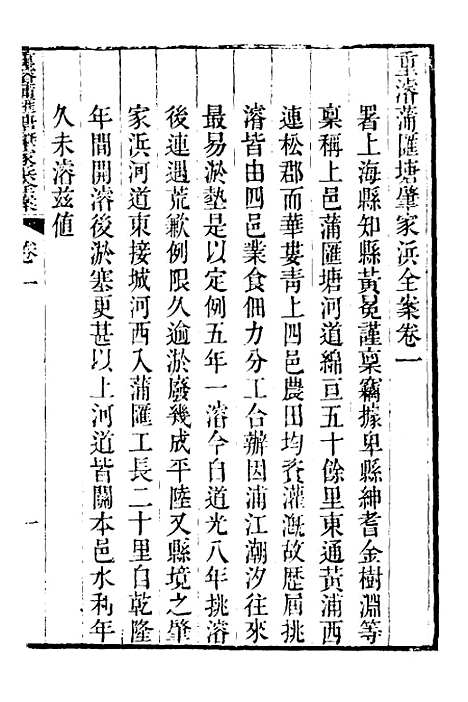 重濬蒲匯塘肇家浜全案卷一
署上海縣知縣黃冕謹稟竊據卑縣紳耆金樹淵等
稟稱上邑蒲匯塘河道綿亘五十餘里東通黃浦西
連松郡而華婁青上四邑農田均資灌溉故歷屆挑
濬皆由四邑業食佃力分工合辦因浦江潮汐往來
最易淤墊是以定例五年一濬今自道光八年挑濬
後連遇荒歉例限久逾淤廢幾成平陸又縣境之肇
家浜河道東接城河西入蒲匯工長二十里自乾隆
年間開濬後淤塞更甚以上河道皆關本邑水利年
久未濬茲值
重濬蒲匯塘肇家浜全案
卷一
一